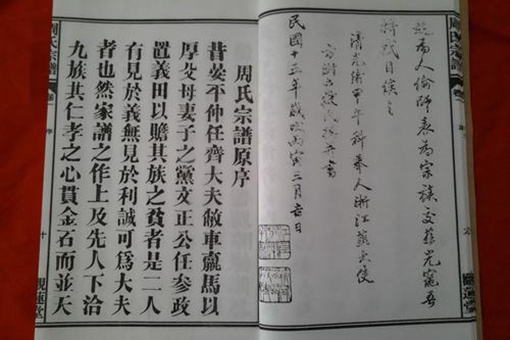 周氏宗譜
人倫師表為宗族交慕光寵吾
將拭目俟之
清光緒甲午科舉人浙江大使
民國十五年歲次丙寅三月吉日
周氏宗譜原序
昔晏平仲任齊大夫敝車羸馬以
厚父母妻子之黨文正公任參政
置義田以贍其族之貧者是二人
有見於義無見於利誠可爲大夫
者也然家譜之作上及先人下洽
九族其仁孝之心貫金石而並天
周氏宗譜
序
十
觀蓮堂